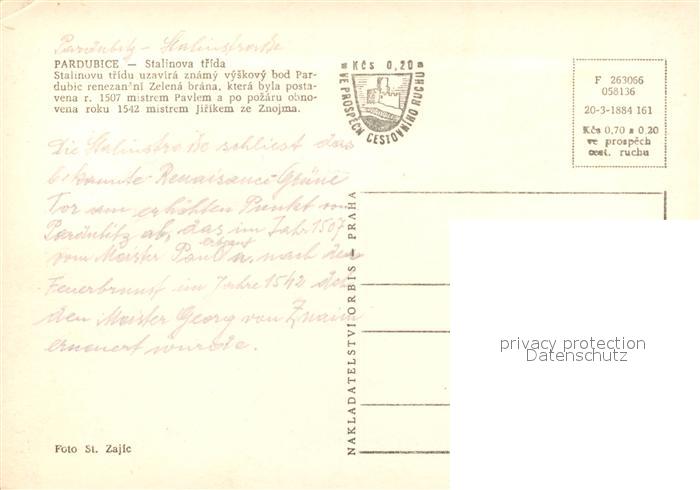 Pardubitz - Stalinstraße
PARDUBICE — Stalinova třída
Stalinovu třídu uzavírá známý výškový bod Par-
dubic renezanční Zelená brána, která byla posta-
vena r. 1507 mistrem Pavlem a po požáru obno-
vena roku 1542 mistrem Jiříkem ze Znojma.
Die Stalinstraße schliest das
bekannte Renaisance-Grüne
Tor am erhöhten Punkt von
Pardubitz ab, das im Jahr 1507
erbaut
vom Meister Paul u. nach der
Feuerbrunst im Jahre 1542 durch
den Meister Georg von Znaim
erneuert wurde.
Foto St. Zajíc
Kčs 0,20
VE PROSPĚCH CESTOVNÍHO RUCHU
F 263066
058136
20-3-1884 161
Kčs 0,70 a 0,20
ve prospěch
cest. ruchu
NAKLADATELSTVÍ ORBIS — PRAHA
privacy protection
Datenschutz